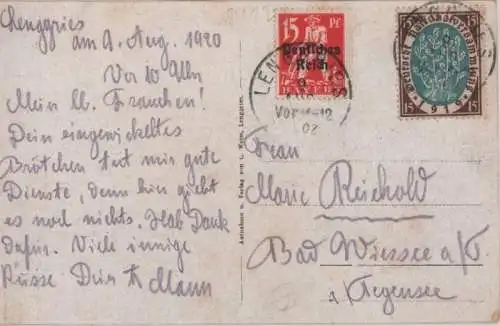 Lenggries
am 9. Aug. 1920
Vor 10 Uhr
Mein lb. Frauchen!
Dein eingewickeltes
Brötchen tut mir gute
Dienste, denn hier giebt
es noch nichts. Hab Dank
dafür. Viele innige
Küsse Dein Mann
15 Pf
Deutsches
Reich
BAYERN
LENGGRIES
VOR 11-12
15 15
1919
Aufnahme u. Verlag von
Frau
Marie Reichold
Bad Wiessee a/T.
a/Tegernsee